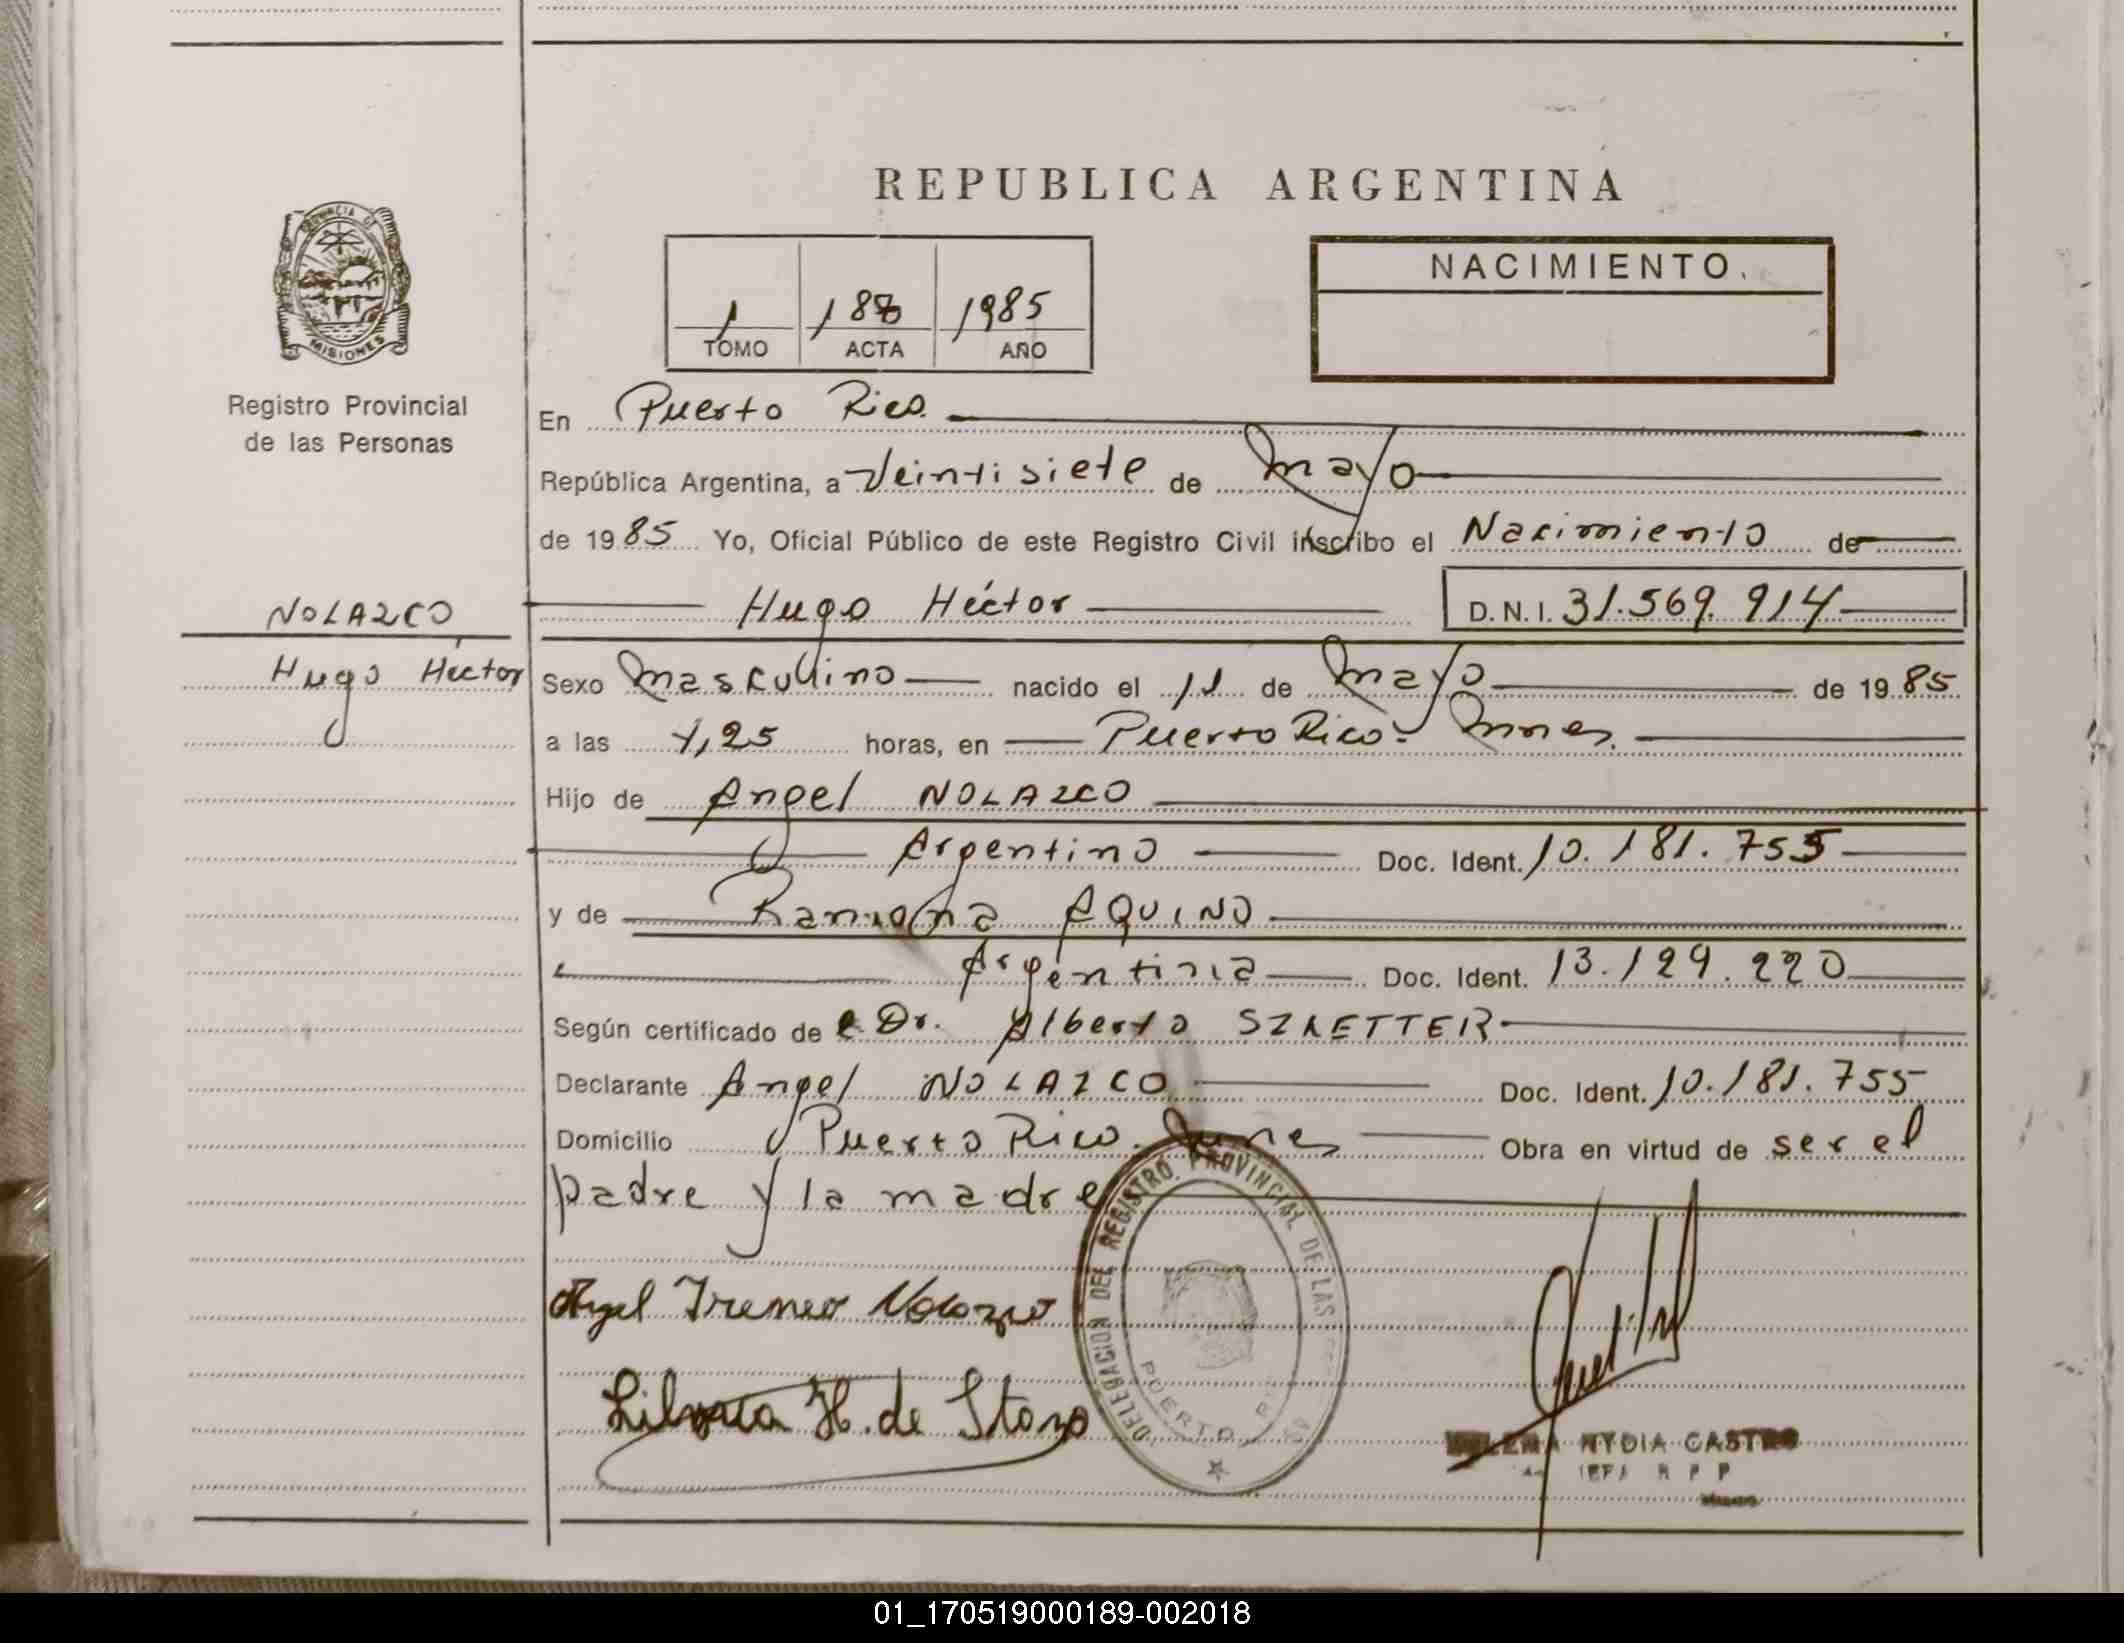 REPUBLICA ARGENTINA
PROVINCIA DE
MISIONES
Registro Provincial
de las Personas
1 188 1985
TOMO ACTA AÑO
NACIMIENTO.
En Puerto Rico.
República Argentina, a Veintisiete de Mayo
de 1985 Yo, Oficial Público de este Registro Civil inscribo el Nacimiento de
NOLAZCO
Hugo Héctor
Hugo Héctor D.N.I. 31.569.914
Sexo Masculino nacido el 11 de Mayo de 1985
a las 1,25 horas, en Puerto Rico - Mnes.
Hijo de Angel NOLAZCO
Argentino Doc. Ident. 10.181.755
y de Ramona AQUINO
Argentina Doc. Ident. 13.129.220
Según certificado de Dr. Alberto
Declarante Angel NOLAZCO Doc. Ident. 10.181.755
Domicilio Puerto Rico. Mnes Obra en virtud de ser el
padre y la madre
Angel Ireneo Nolazco
H. de
DELEGACION DEL REGISTRO PROVINCIAL DE LAS
PUERTO
NYDIA CASTRO